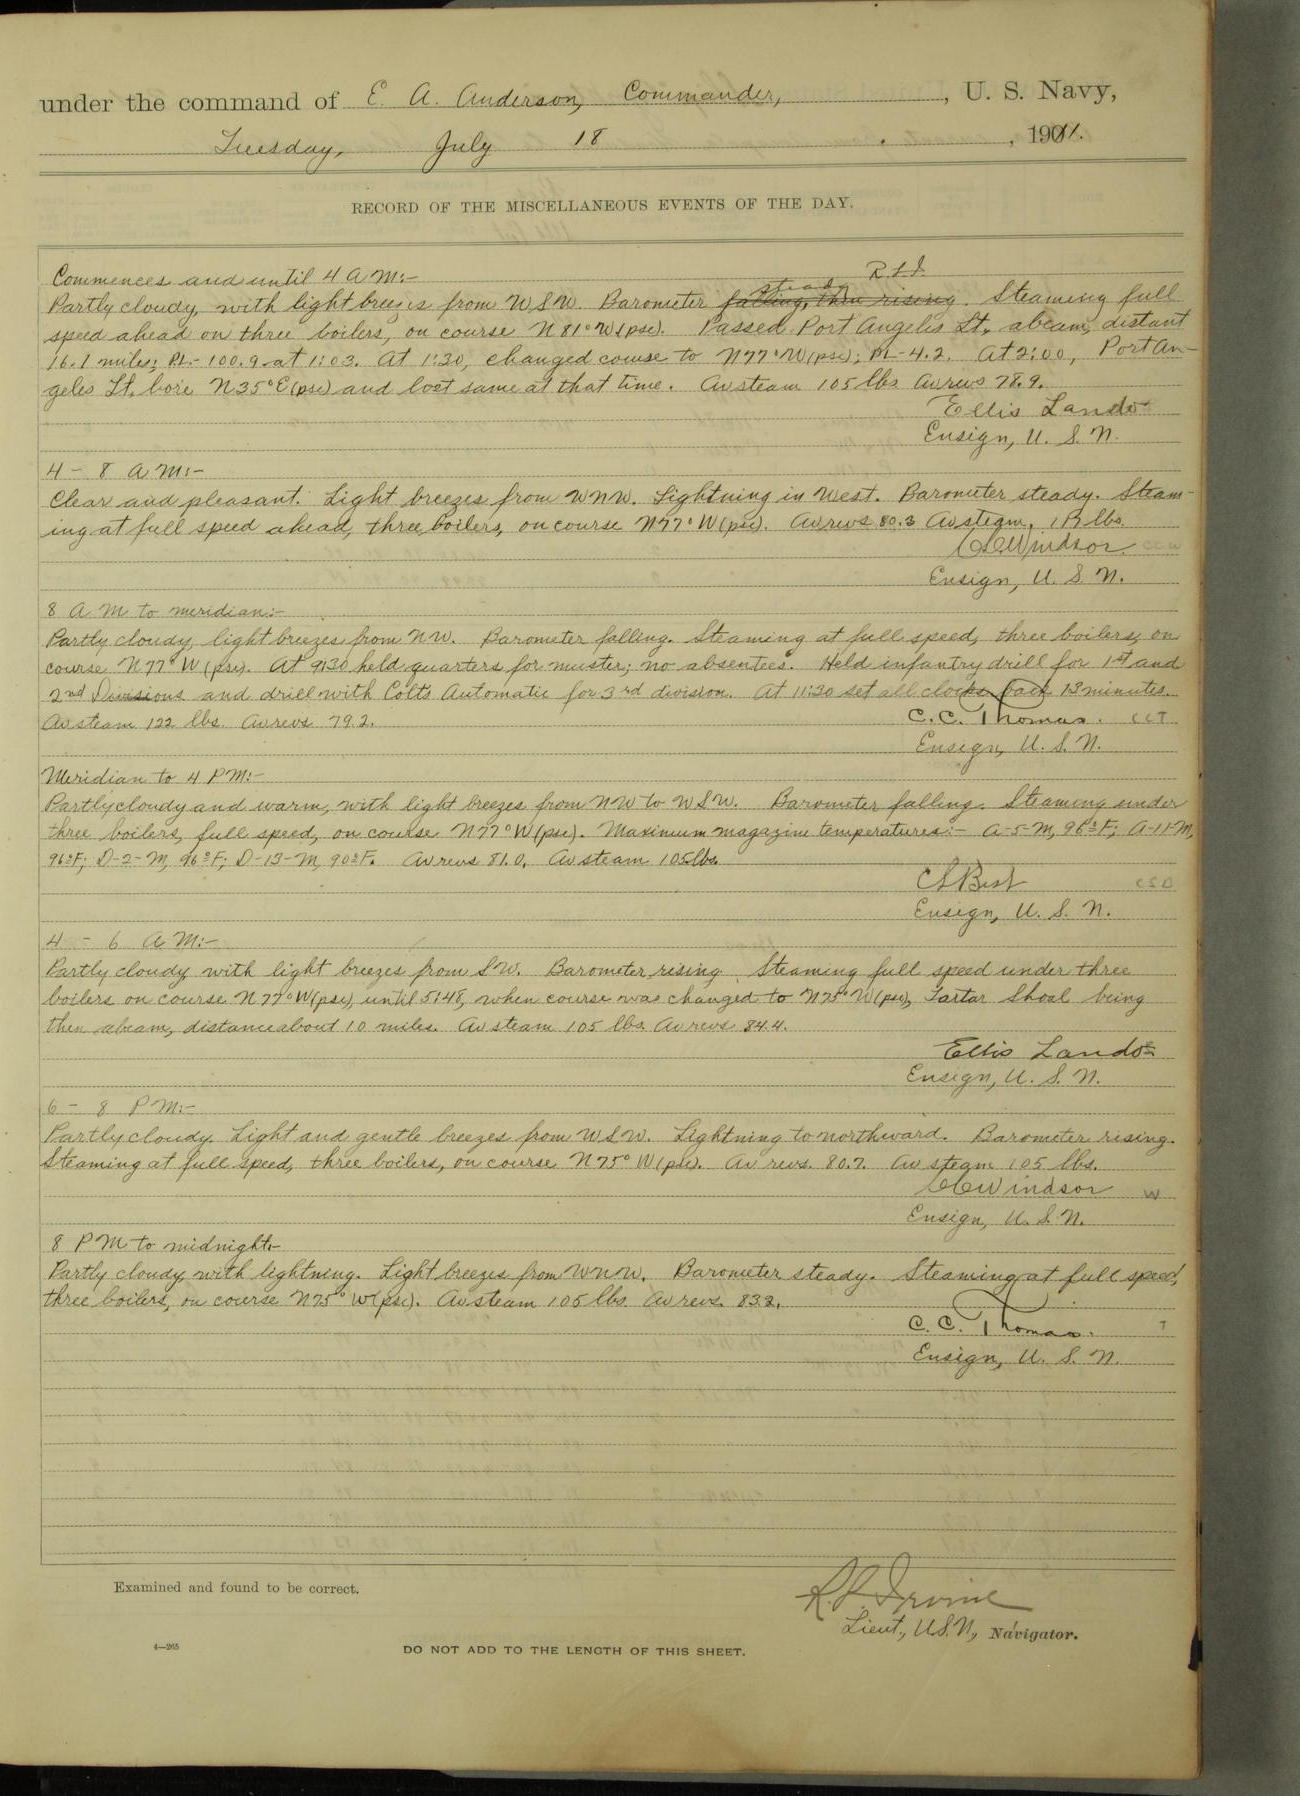 under the command of E. A. Anderson, Commander, , U. S. Navy,
Tuesday, July 18 , 1911.
RECORD OF THE MISCELLANEOUS EVENTS OF THE DAY.
Commences and until 4 A M:-
R.L.I.
steady
Partly cloudy, with light breezes from W S W. Barometer falling, then rising. Steaming full
speed ahead on three boilers, on course N 81° W (psc). Passed Port Angeles Lt. abeam, distant
16.1 miles; PL-100.9 at 1:03. At 1:30, changed course to N 77° W (psc); PL-4.2. At 2:00, Port An-
geles Lt. bore N 35° E (psc) and lost same at that time. Av steam 105 lbs Av revs 78.9.
Ellis Lando
Ensign, U. S. N.
4 - 8 A M:-
Clear and pleasant. Light breezes from WNW. Lightning in West. Barometer steady. Steam-
ing at full speed ahead, three boilers, on course N 77° W (psc). Av revs 80.3 Av steam, lbs.
C C Windsor CCW
Ensign, U. S. N.
8 A M to meridian:-
Partly cloudy, light breezes from NW. Barometer falling. Steaming at full speed, three boilers, on
course N 77° W (psc). At 9:30 held quarters for muster; no absentees. Held infantry drill for 1st and
2nd Divisions and drill with Colts Automatic for 3rd division. At 11:30 set all clocks back 13 minutes.
Av steam 122 lbs Av revs 79.2.
C. C. Thomas. CCT
Ensign, U. S. N.
Meridian to 4 P M:-
Partly cloudy and warm, with light breezes from NW to WSW. Barometer falling. Steaming under
three boilers, full speed, on course N 77° W (psc). Maximum magazine temperatures:- A-5-M, 96°F; A-11-M,
96°F; D-2-M, 96°F; D-13-M, 90°F. Av revs 81.0. Av steam 105 lbs.
C S Best CSB
Ensign, U. S. N.
4 - 6 A M:-
Partly cloudy with light breezes from S W. Barometer rising. Steaming full speed under three
boilers on course N 77° W (psc), until 5:48, when course was changed to N 75° W (psc), Tartar Shoal being
then abeam, distance about 10 miles. Av steam 105 lbs Av revs 84.4.
Ellis Lando
Ensign, U. S. N.
6 - 8 P M:-
Partly cloudy. Light and gentle breezes from WSW. Lightning to northward. Barometer rising.
Steaming at full speed, three boilers, on course N 75° W (psc). Av revs. 80.7. Av steam 105 lbs.
C C Windsor W
Ensign, U. S. N.
8 P M to midnight:-
Partly cloudy, with lightning. Light breezes from WNW. Barometer steady. Steaming at full speed,
three boilers, on course N 75° W (psc). Av steam 105 lbs. Av revs. 83.2.
C. C. Thomas. T
Ensign, U. S. N.
Examined and found to be correct.
R. L. Irvine
Lieut., U.S.N., Navigator.
4—265
DO NOT ADD TO THE LENGTH OF THIS SHEET.